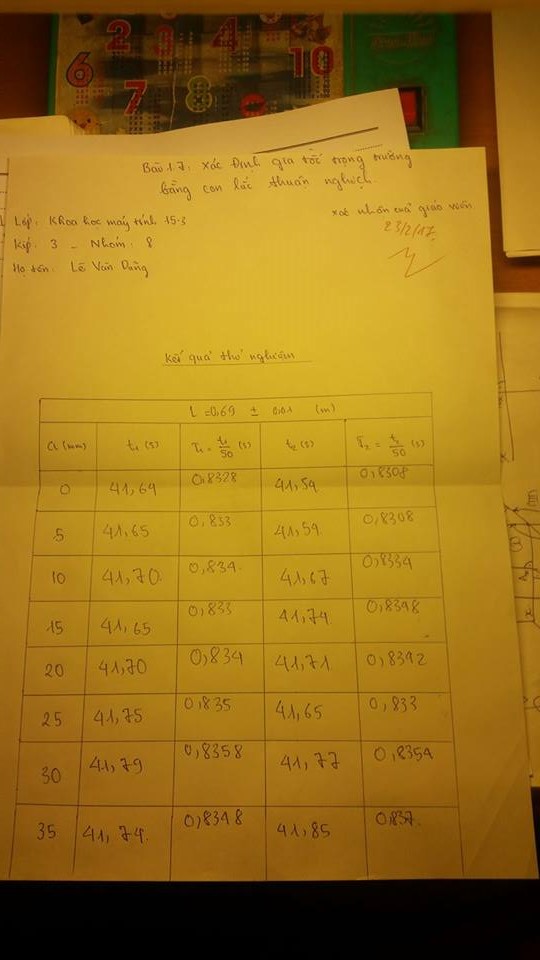 2 3 4
6 10
7 8
Bài 1.7: Xác Định gia tốc trọng trường
bằng con lắc thuận nghịch.
Lớp: Khoa học máy tính 15.3
xác nhận của giáo viên
23/2/17
Kíp: 3 - Nhóm: 8
Họ tên: Lê Văn Dũng
Kết quả thí nghiệm
L = 0,69 ± 0,01 (m)
a (mm) t₁ (s) T₁ = t₁/50 (s) t₂ (s) T₂ = t₂/50 (s)
0 41,64 0,8328 41,54 0,8308
5 41,65 0,833 41,54 0,8308
10 41,70 0,834 41,67 0,8334
15 41,65 0,833 41,74 0,8348
20 41,70 0,834 41,71 0,8342
25 41,75 0,835 41,65 0,833
30 41,79 0,8358 41,77 0,8354
35 41,74 0,8348 41,85 0,837